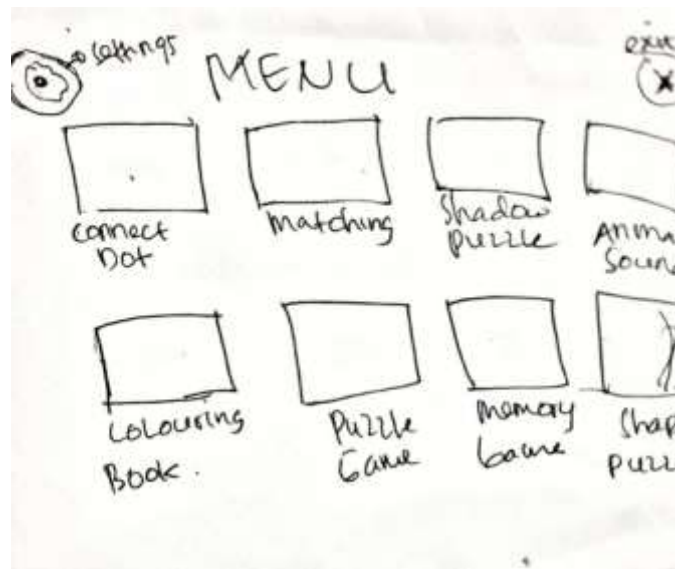 settings
MENU
exit
X
connect
Dot
matching
Shadow
puzzle
Anima
Soun
Colouring
Book.
Puzzle
Game
memory
Game
Shap
puzz